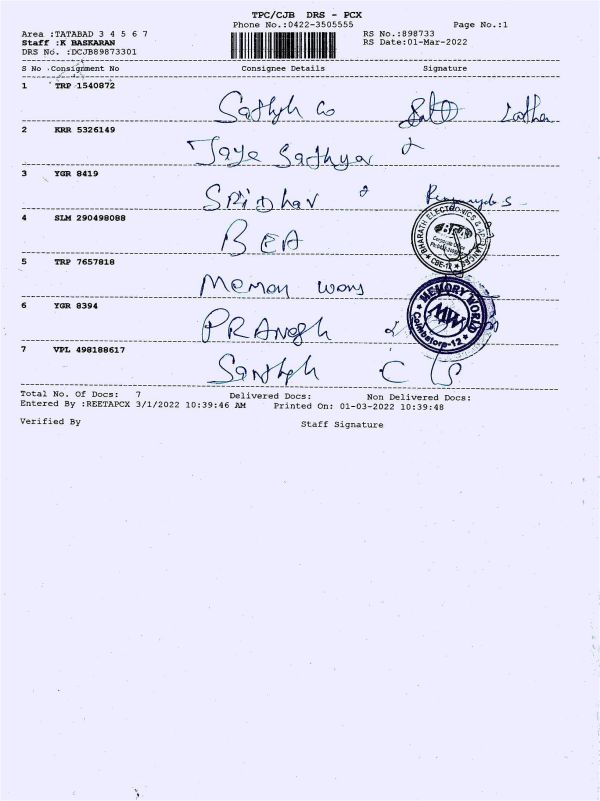 TPC/CJB DRS - PCX
Phone No.:0422-3505555 Page No.:1
Area :TATABAD 3 4 5 6 7 RS No.:898733
Staff :K BASKARAN RS Date:01-Mar-2022
DRS No. :DCJB89873301
S No Consignment No Consignee Details Signature
1 TRP 1540872
Sathyh Co
2 KRR 5326149
Jaye Sathya
3 YGR 8419
SRiDhar
4 SLM 290498088
BEA
BHARATH ELECTRONICS & APPLIANCES
CBE-12
5 TRP 7657818
Memory
6 YGR 8394
PRANegh
MEMORY WORLD
MW
Coimbatore-12
7 VPL 498188617
Total No. Of Docs: 7 Delivered Docs: Non Delivered Docs:
Entered By :REETAPCX 3/1/2022 10:39:46 AM Printed On: 01-03-2022 10:39:48
Verified By Staff Signature